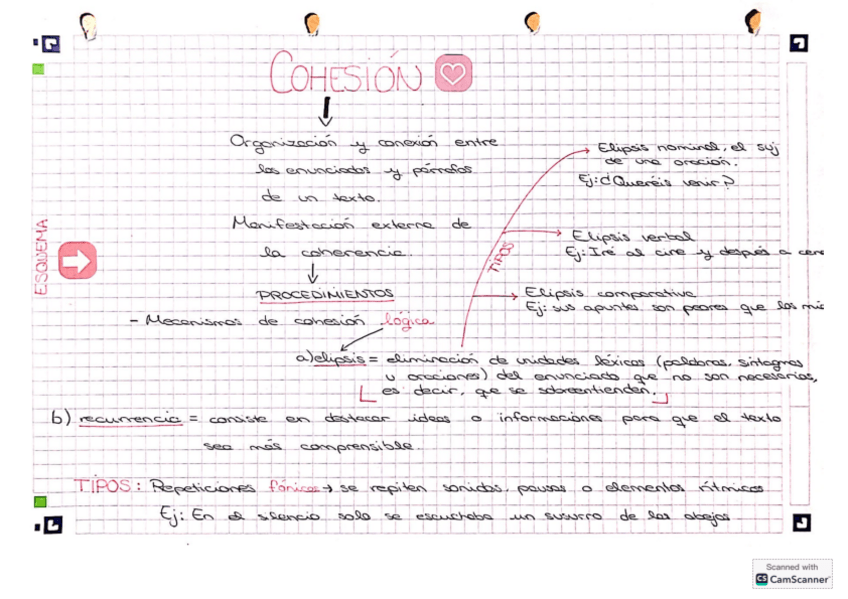 COHESIÓN
Organización y conexión entre
los enunciados y párrafos
de un texto.
Manifestación externa de
la coherencia.
PROCEDIMIENTOS
- Mecanismos de cohesión lógica
ESQUEMA
TIPOS
Elipsis nominal, el suj
de una oración.
Ej: ¿Queréis venir?
Elipsis verbal
Ej: Iré al cine y después a cena
Elipsis comparativa
Ej: sus apuntes son peores que los mío
a) elipsis = eliminación de unidades léxicas (palabras, sintagmas
u oraciones) del enunciado que no son necesarias,
es decir, que se sobreentienden.
b) recurrencia = consiste en destacar ideas o informaciones para que el texto
sea más comprensible.
TIPOS: Repeticiones fónicas → se repiten sonidos, pausas o elementos rítmicos
Ej: En el silencio solo se escuchaba un susurro de las abejas
Scanned with
CS CamScanner